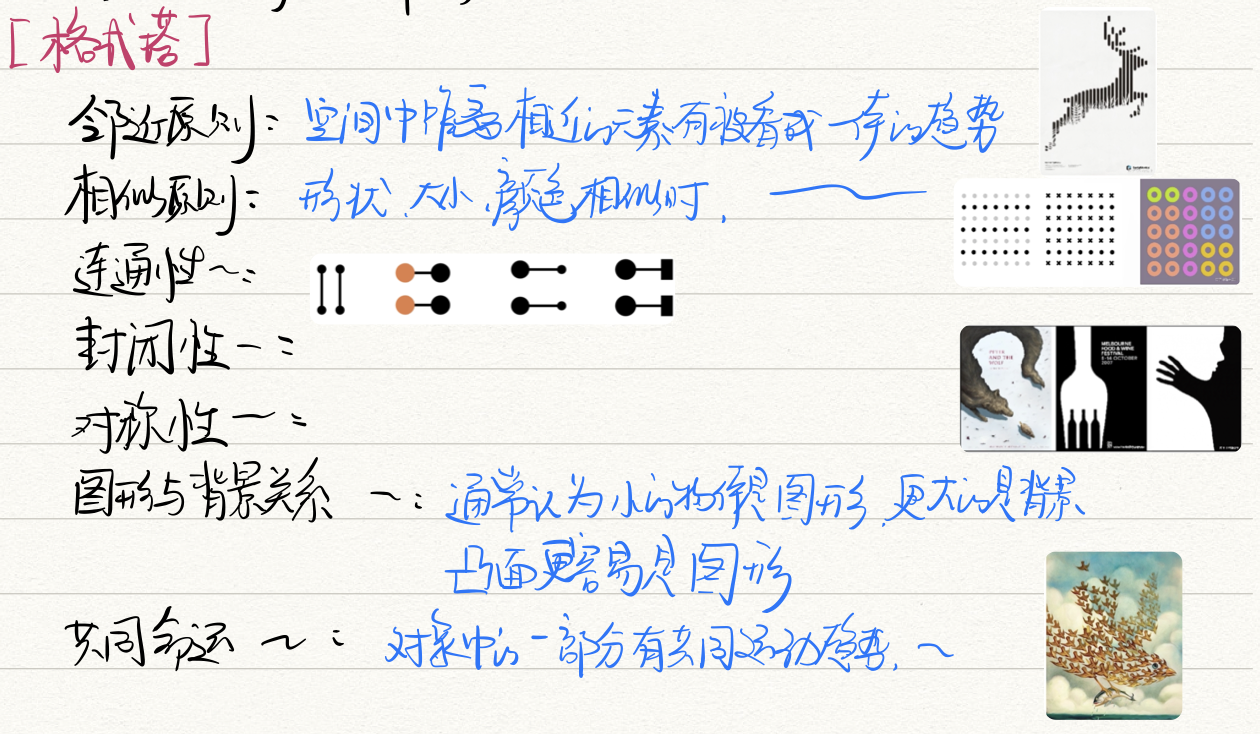 [格式塔]
邻近原则: 空间中距离相近的元素有被看成一体的趋势
相似原则: 形状、大小、颜色相似时, ~
连通性~:
封闭性~:
对称性~:
图形与背景关系 ~: 通常认为小的物体是图形,更大的是背景
凸面更容易是图形
共同命运 ~: 对象中的一部分有共同运动趋势, ~
PETER
AND THE
WOLF
MELBOURNE
FOOD & WINE
FESTIVAL